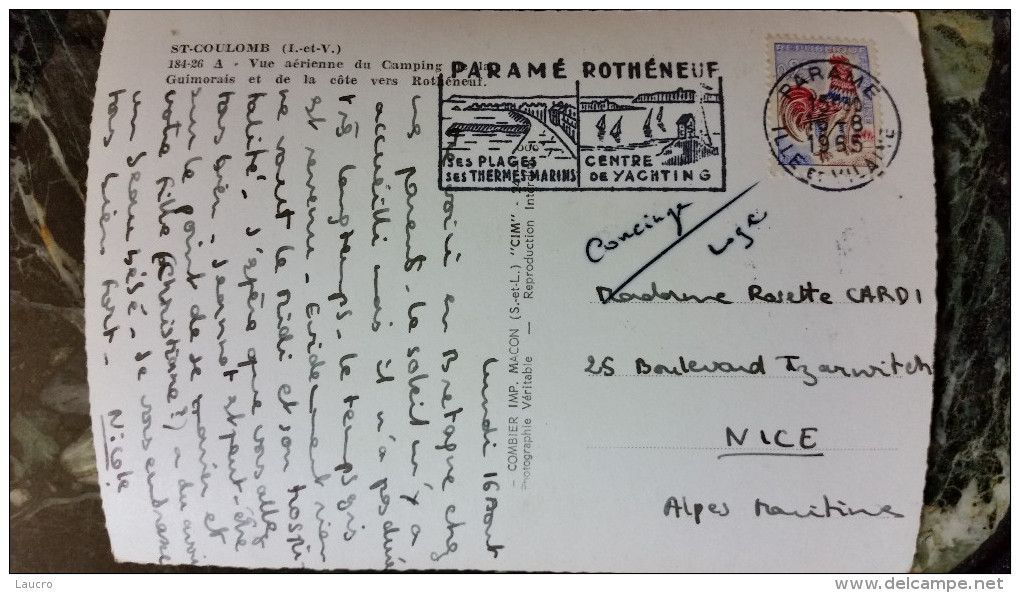 ST-COULOMB (I.-et-V.)
184-26 A - Vue aérienne du Camping de la
Guimorais et de la côte vers Rothéneuf.
PARAMÉ ROTHÉNEUF
SES PLAGES
SES THERMES MARINS
CENTRE
DE YACHTING
PARAME
18
1965
ILLE ET VILAINE
Lundi 16 Aout
voici en Bretagne chez
un parent - Le soleil m'y a
accueilli mais il n'a pas duré
très longtemps - le temps gris
est revenu - Evidemment rien
ne vaut le Midi et son hospi-
talité - J'espère que vous allez
tous bien - Jeannot est peut-être
sur le point de se marier et
votre fille (Christiane ?) a du avoir
un beau bébé - Je vous embrasse
tous bien fort -
Nicole
- COMBIER IMP. MACON (S.-et-L.) "CIM" -
Photographie Véritable — Reproduction Inter
Concierge
Loge
Madame Rosette CARDI
25 Boulevard Tzarwitch
NICE
Alpes Maritimes
Laucro
delcampe.net